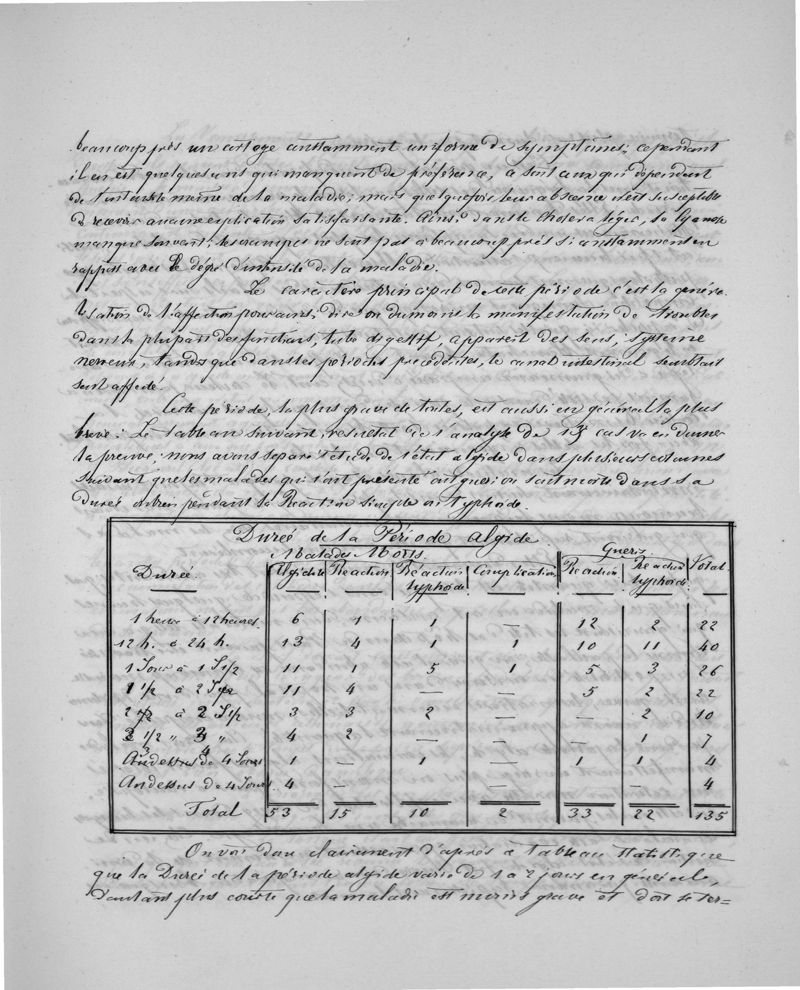 beaucoup près un cortège constamment uniforme de symptômes; cependant
il en est quelques uns qui manquent de préférence, ce sont ceux qui dépendent
de l'intensité même de la maladie; mais quelquefois leur absence n'est susceptible
de recevoir aucune explication satisfaisante. Ainsi dans le cholera léger, la cyanose
manque souvent; les crampes ne sont pas à beaucoup près si constamment en
rapport avec le dégré d'intensité de la maladie.
Le caractère principal de cette période c'est la généra-
lisation de l'affection pour ainsi dire ou du moins la manifestation de troubles
dans la plupart des fonctions, tube digestif, appareil des sens, système
nerveux, tandis que dans les périodes précédentes, le canal intestinal semblait
seul affecté.
Cette période, la plus grave de toutes, est aussi en général la plus
brève: Le tableau suivant, resultat de l'analyse de 135 cas va en donner
la preuve: nous avons séparé l'étude de l'état algide dans plusieurs colonnes
suivant que les malades qui l'ont présenté ont guéri ou sont morts dans sa
durée ou bien pendant la Réaction simple ou typhoïde.
Durée de la Période algide
Malades Morts. Gueris.
Durée. Algidité Réaction Réaction typhoïde Complication Réaction Réaction typhoïde Total
1 heure à 12 heures. 6 1 1 — 12 2 22
12 h. à 24 h. 13 4 1 1 10 11 40
1 Jour à 1 J 1/2 11 1 5 1 5 3 26
1 1/2 à 2 J 11 4 — — 5 2 22
2 à 2 J 1/2 3 3 2 — — 2 10
3 " 4 " 4 2 — — — 1 7
Au dessus de 4 Jours 1 — 1 — 1 1 4
Au dessus de 4 Jours. 4 — — — 4
Total 53 15 10 2 33 22 135
On voit donc clairement d'après ce tableau statistique
que la Durée de la période algide varie de 1 à 2 jours en général,
d'autant plus courte que la maladie est moins grave et doit se ter=